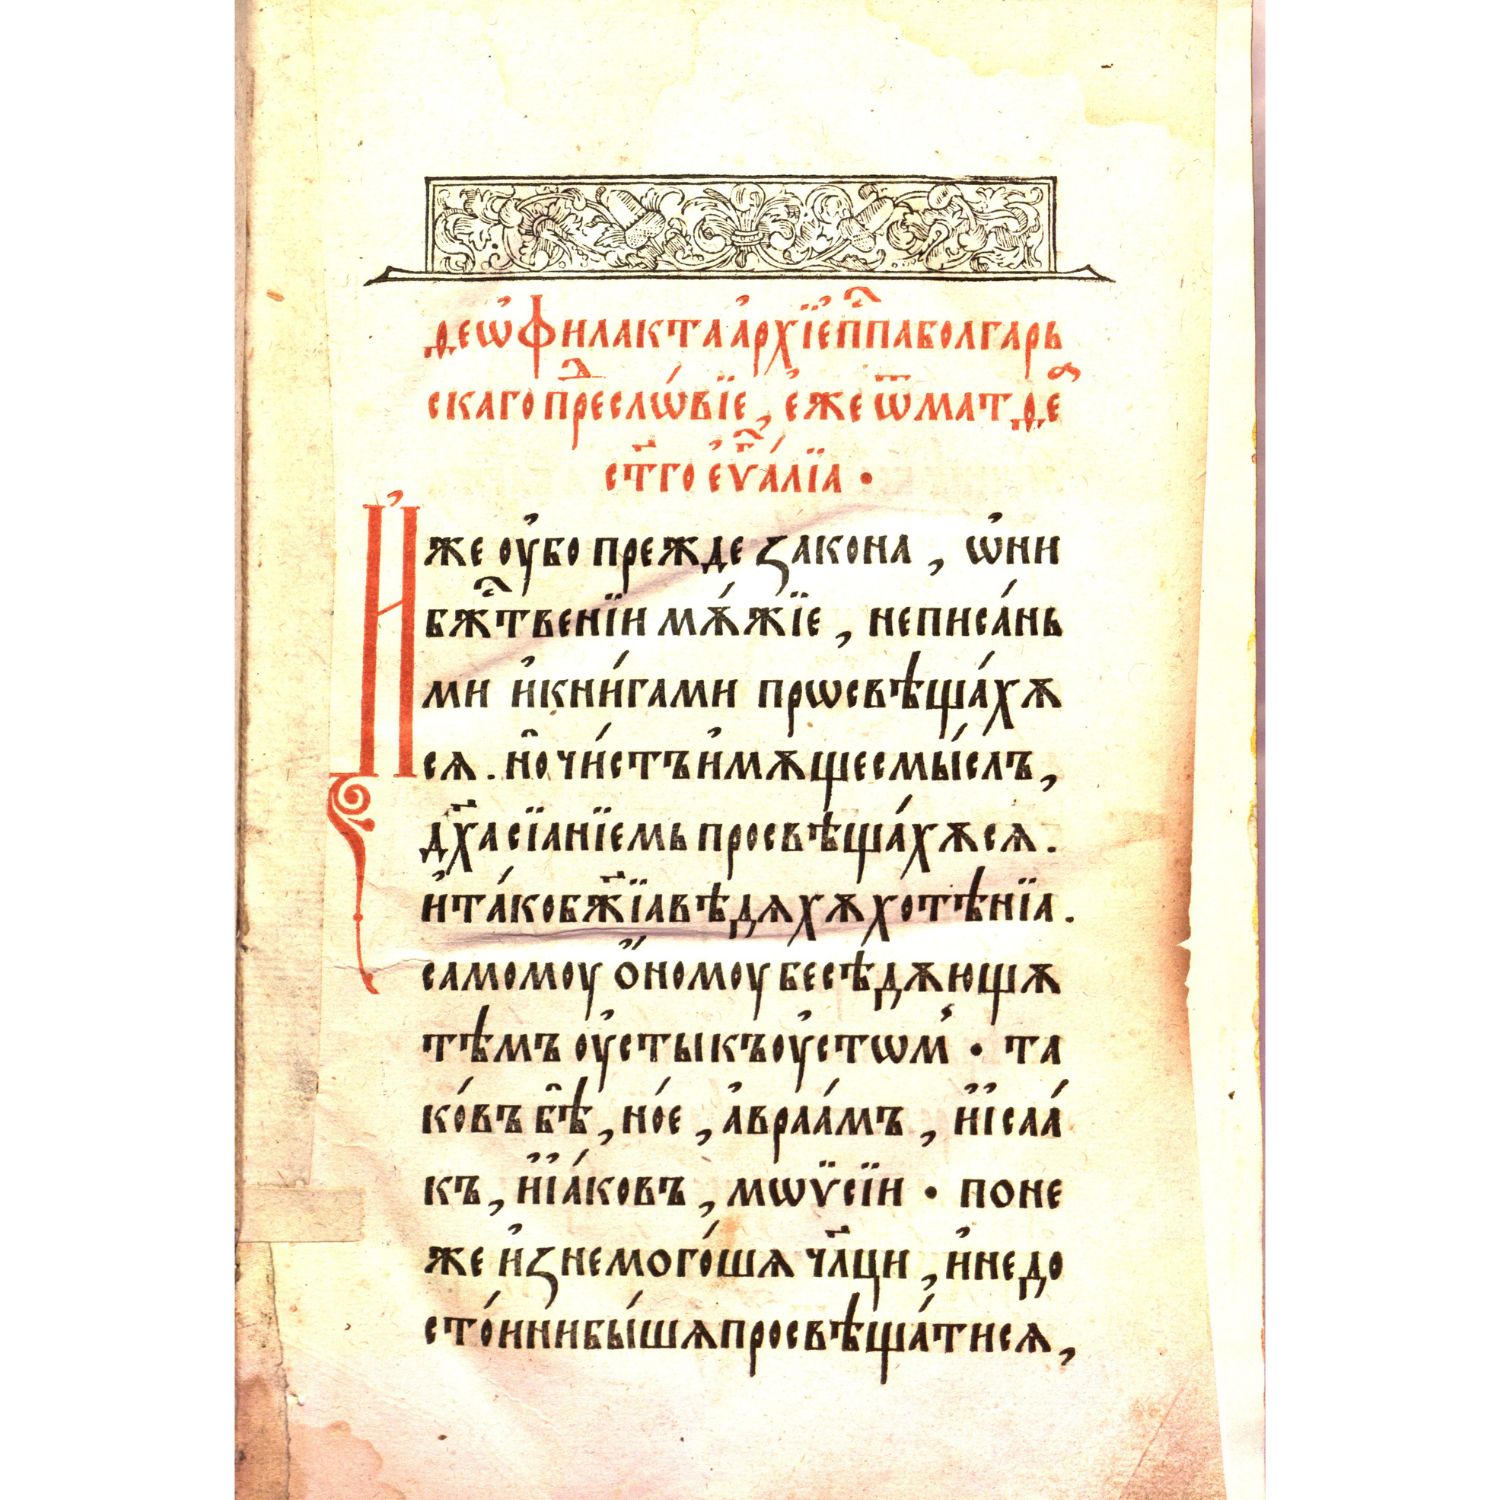 Ѳеѡ҆филакта а҆рхїе҆пⷭ҇па болгарь
скаго преⷣслѡ́вїе, є҆же ѿ матѳеⷽ҇
ст҃го є҆ѵⷢ҇а́лїа •
И҆же оу҆бо прежде закона, ѡ҆ни
бжⷭ҇твенїи мѫ́жїе, не писа́нь
ми и҆ кни́гами прѡсвѣща́хѫ
сѧ. но̑ чи́стъ и҆мѫще смы́слъ,
дх҃а сїанїемь просвѣща́хѫсѧ.
и҆ та́ко бж҃їа вѣдѧхѫ хотѣнїа.
самомоу ѻ҆номоу бесѣдѫющѫ
тѣмъ оу҆сты къ оу҆стѡм̾ • та
ко́въ бѣ̑, но́е, а҆враа́мъ, и҆ і҆саа́
къ, и҆ і҆а́ковъ, мѡѵ̈сїи • поне
же и҆знемого́шѧ чл҃ци, и҆ недо
сто́йни бы́шѧ просвѣща́тисѧ,